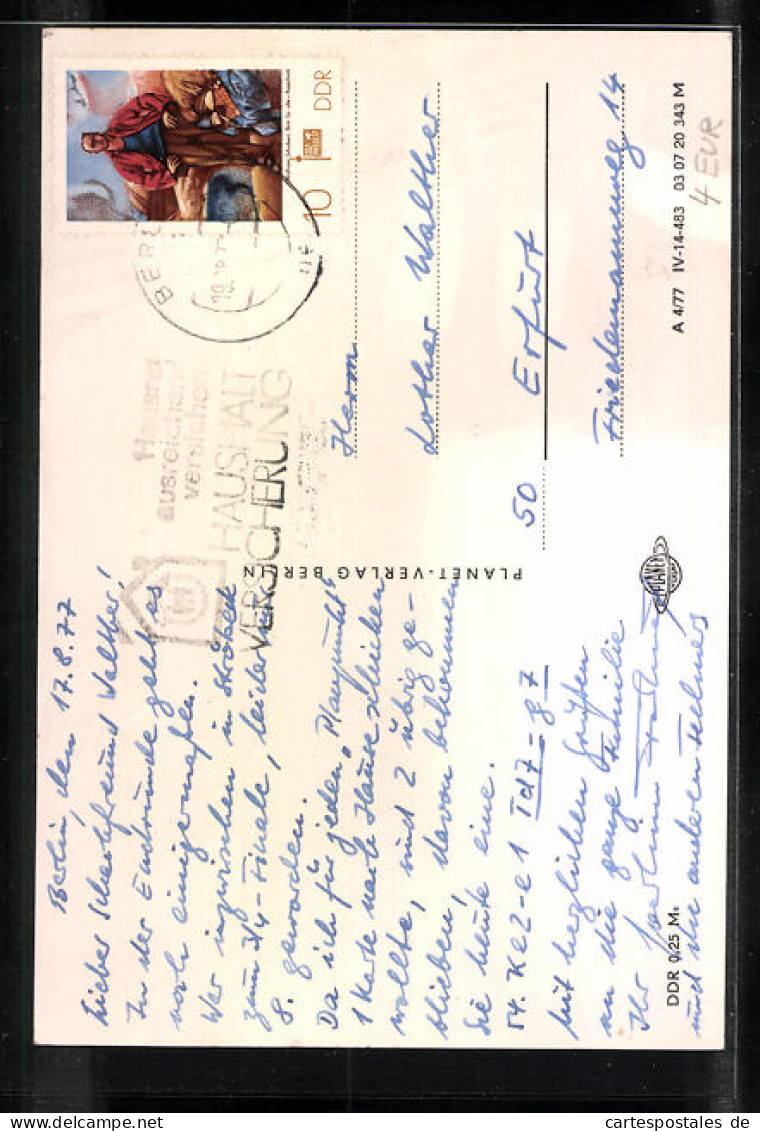 Berlin, den 17.8.77
Lieber Schachfreund Walther!
In der Endrunde geht es
noch einigermaßen.
War inzwischen in Ströbeck
zum 3/4-Finale, leider nur
8. geworden.
Da ich für jeden „Pluspunkt"
1 Karte nach Hause schicken
wollte, und 2 übrig ge-
blieben, davon bekommen
Sie heute eine.
54. Ke2-e1 Td7-g7
Mit herzlichen Grüßen
an die ganze Familie
Ihr Joachim
und die anderen
DDR 0,25 M
PLANET-VERLAG BERLIN
PLANET
Hausrat
ausreichend
versichern
HAUSHALT
VERSICHERUNG
BERLIN
10 DDR
Herrn
Lothar Walther
50 Erfurt
Friedemannweg 14
A 4/77 IV-14-483 03 07 20 343 M
4 EUR
cartespostales de delcampe.net